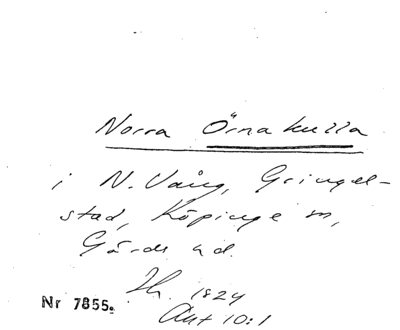 Norra Örnakulla
i N. Vång, Gringel-
stad, Köpinge sn,
Gärds hd.
Ih. 1824
Akt 10:1
Nr 7855.